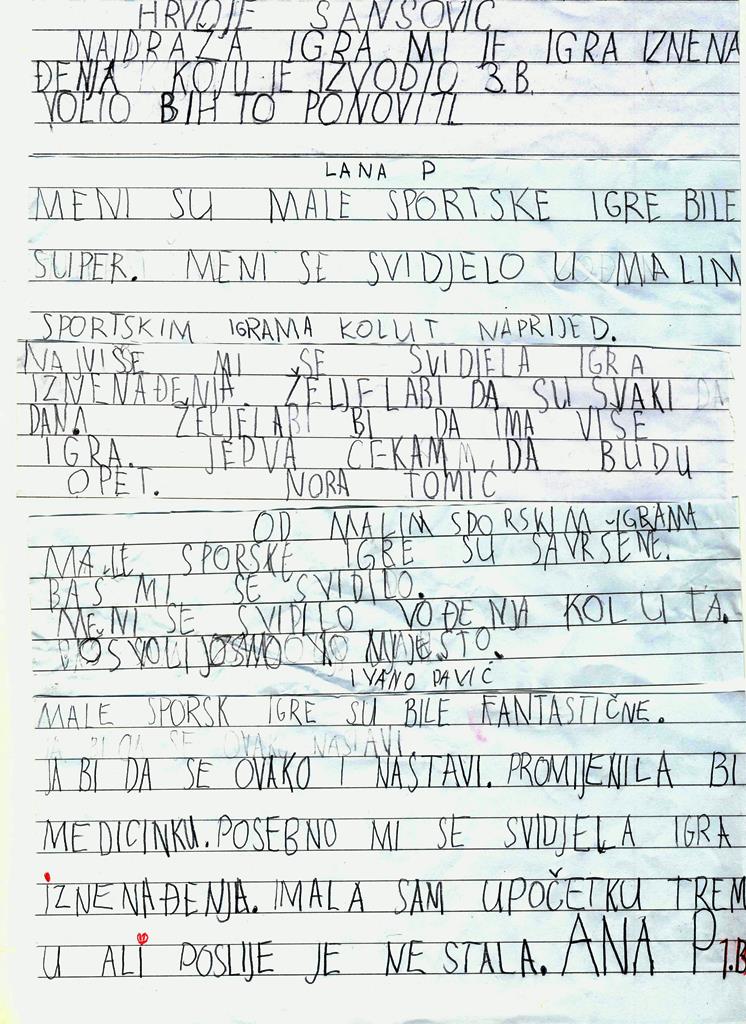 HRVOJE SANSOVIĆ
NAJDRAŽA IGRA MI JE IGRA IZNENA
ĐENJA KOJU JE IZVODIO 3.B.
VOLIO BIH TO PONOVITI
LANA P
MENI SU MALE SPORTSKE IGRE BILE
SUPER. MENI SE SVIDJELO U MALIM
SPORTSKIM IGRAMA KOLUT NAPRIJED.
NAJVIŠE MI SE SVIDJELA IGRA
IZNENAĐENJA. ŽELJELABI DA SU SVAKI DA
DANA ŽELJELABI BI DA IMA VIŠE
IGRA. JEDVA ČEKAM DA BUDU
OPET. NORA TOMIĆ
OD MALIM SPORSKIM IGRAMA
MALE SPORSKE IGRE SU SAVRŠENE.
BAŠ MI SE SVIDILO.
MENI SE SVIDILO VOĐENJA KOLUTA.
MJESTO.
IVANO PAVIĆ
MALE SPORSK IGRE SU BILE FANTASTIČNE.
JA BI DA SE OVAKO NASTAVI.
JA BI DA SE OVAKO I NASTAVI. PROMIJENILA BI
MEDICINKU. POSEBNO MI SE SVIDJELA IGRA
IZNENAĐENJA. IMALA SAM UPOČETKU TREM
U ALI POSLIJE JE NESTALA. ANA P 1.B